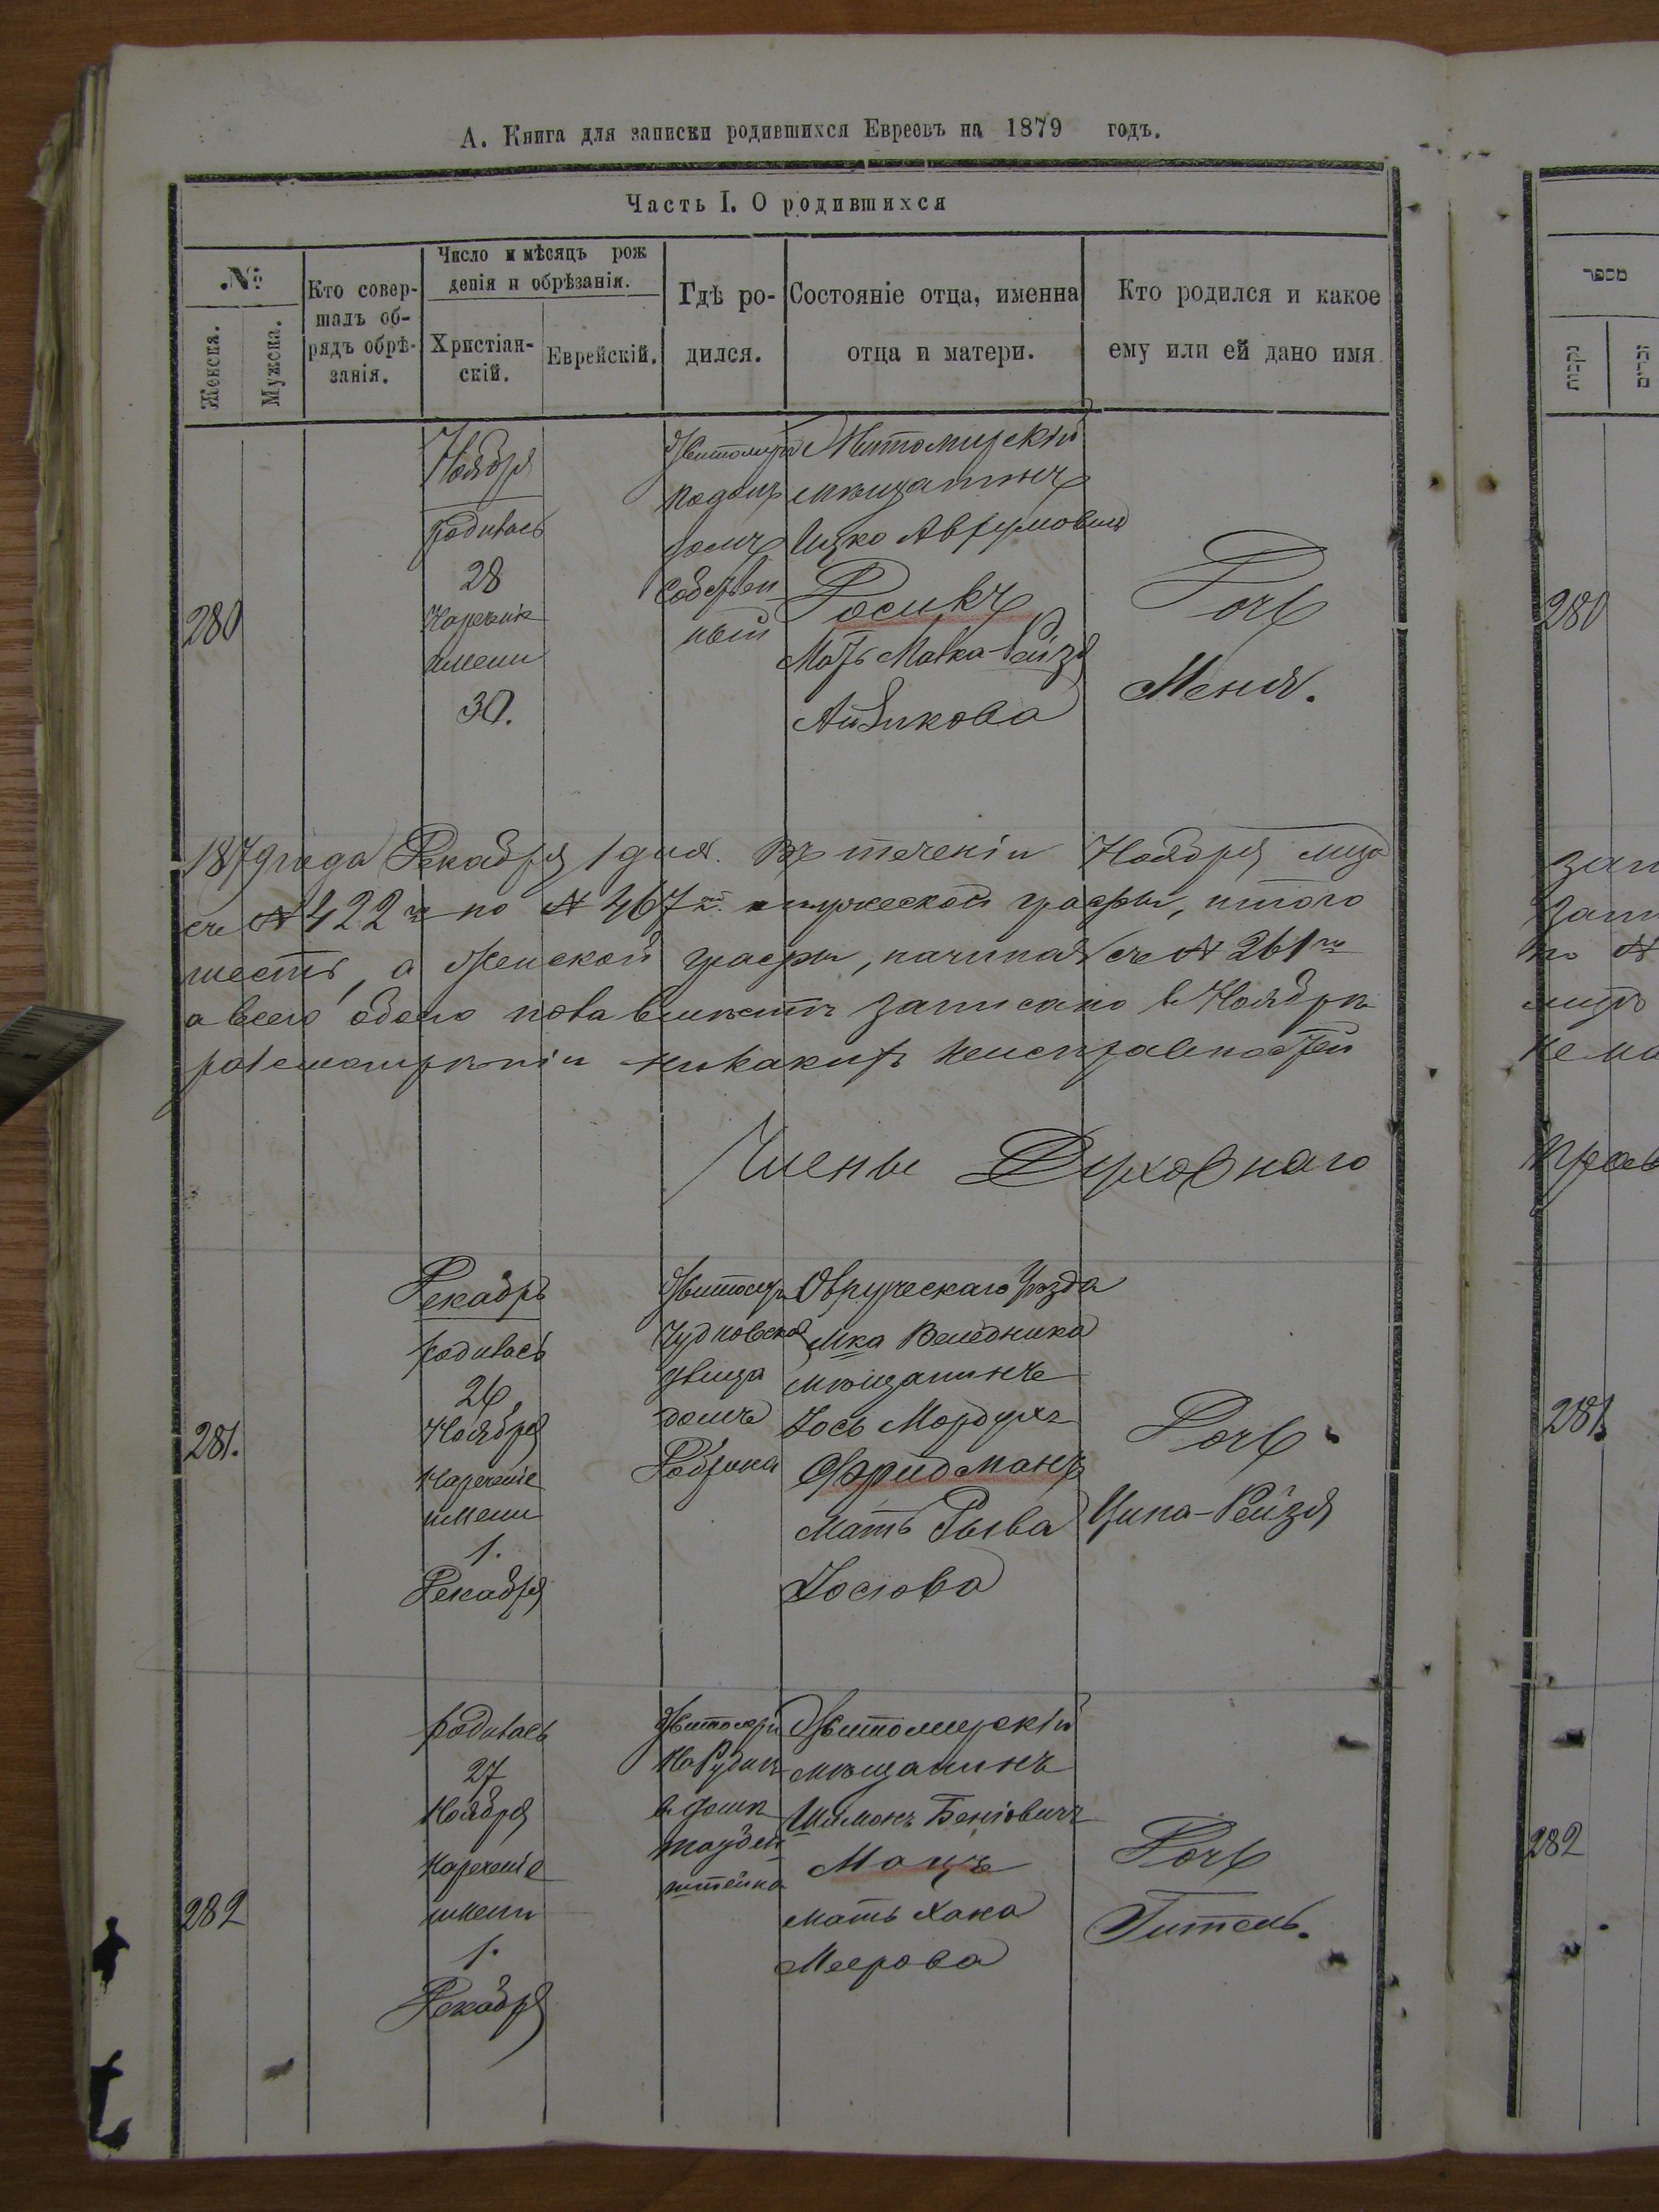 А. Книга для записки родившихся Евреевъ на 1879 годъ.
Часть I. О родившихся
№
Женска.
Мужска.
Кто совер-
шалъ об-
рядъ обрѣ-
занія.
Число и мѣсяцъ рож
денія и обрѣзанія.
Христіан-
скій.
Еврейскій.
Гдѣ ро-
дился.
Состояніе отца, именна
отца и матери.
Кто родился и какое
ему или ей дано имя
280
Ноября
родилась
28
Нареченіе
имени
30.
Житомиръ
домъ
собствен
ный
Житомирскій
мѣщанинъ
Ицко Аврумовичъ
Мать Малка-Рейзя
Айзикова
Дочь
Меня.
1879 года Декабря 1 дня. Въ теченіи Ноября мца
съ № 422 по № 467 мужеской графы, итого
шесть, а Женской графы, начиная съ № 261
а всего обоего пола вмѣстѣ записано в Ноябрѣ
разсмотрѣніи никакихъ неисправностей
Члены Духовнаго
281.
Декабрь
родилась
26
Ноября
Нареченіе
имени
1.
Декабря
Житомиръ
Чудновская
улица
домъ
Овручскаго Уѣзда
мка Веледника
мѣщанинъ
Іось Мордухъ
Фридманъ
Мать Рыва
Іосіова
Дочь
Ципа-Рейзя
282
родилась
27
Ноября
Нареченіе
имени
1.
Декабря
Житомиръ
На Руднѣ
в домѣ
штейна
Житомирскій
мѣщанинъ
Шимонъ Беніовичъ
Мацъ
мать Хана
Меерова
Дочь
Гитель.
מספר
נקבות
זכרים
280
281
282